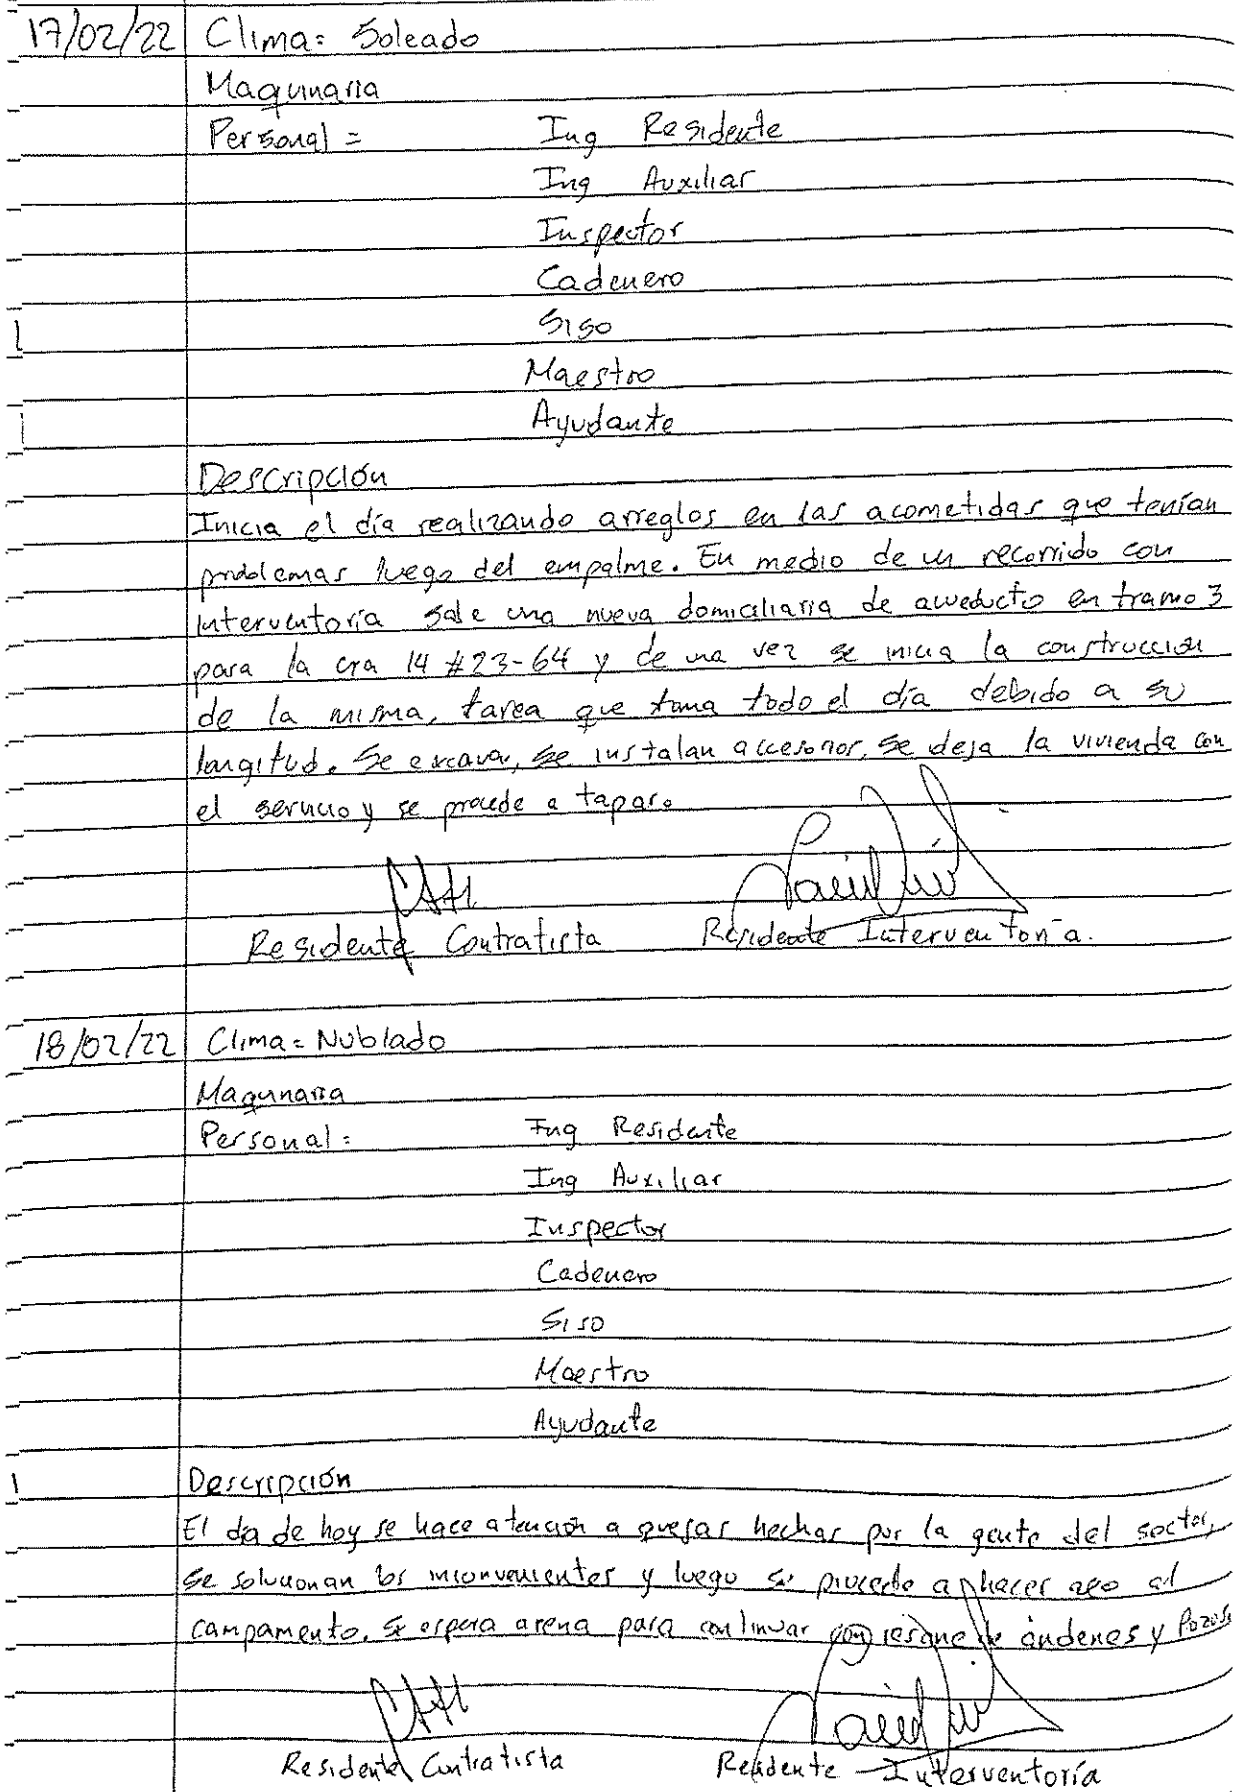 17/02/22 Clima= Soleado
Maquinaria
Personal = Ing Residente
Ing Auxiliar
Inspector
Cadenero
Siso
Maestro
Ayudante
Descripción
Inicia el día realizando arreglos en las acometidas que tenían
problemas luego del empalme. En medio de un recorrido con
interventoría sale una nueva domiciliaria de acueducto en tramo 3
para la cra 14 #23-64 y de una vez se inicia la construccion
de la misma, tarea que toma todo el día debido a su
longitud. Se excava, se instalan accesorios, se deja la vivienda con
el servicio y se procede a tapar.
Residente Contratista Residente Interventoría.
18/02/22 Clima= Nublado
Maquinaria
Personal: Ing Residente
Ing Auxiliar
Inspector
Cadenero
Siso
Maestro
Ayudante
Descripción
El dia de hoy se hace atención a quejas hechas por la gente del sector,
se solucionan los inconvenientes y luego se procede a hacer aseo al
campamento. Se espera arena para continuar con resane de andenes y Pozos
Residente Contratista Residente Interventoría